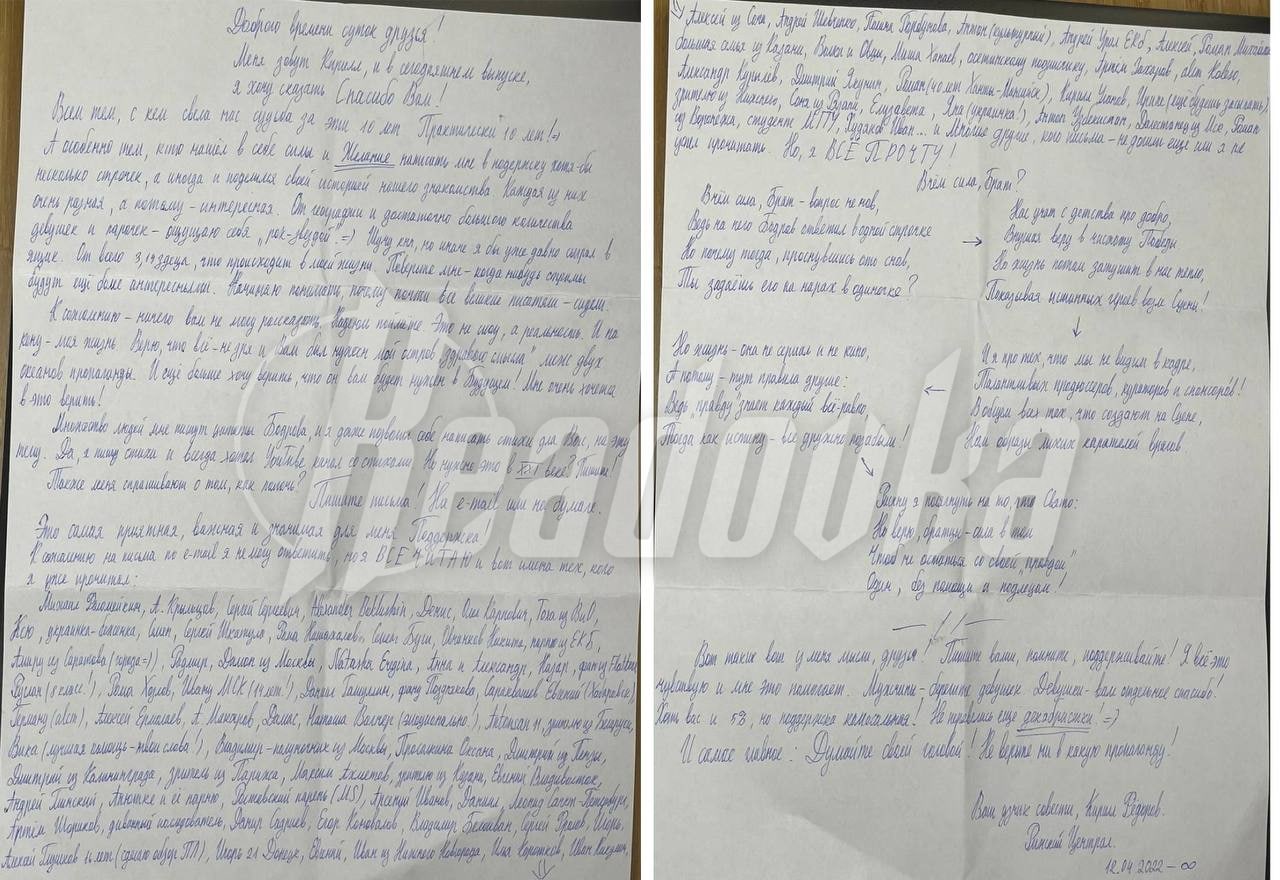 Доброго времени суток друзья!
Меня зовут Кирилл, и в сегодняшнем выпуске,
я хочу сказать Спасибо Вам!
Всем тем, с кем свела нас судьба за эти 10 лет Практически 10 лет! =)
А особенно тем, кто нашёл в себе силы и Желание написать мне в подержку хотя-бы
несколько строчек, а иногда и поделился своей историей нашего знакомства. Каждая из них
очень разная, а потому - интересная. От географии и достаточно большого количества
девушек и парочек - ощущаю себя "рок-звездой" =) Шучу кнч, но иначе я бы уже давно сыграл в
ящик. От всего , что происходит в моей жизни. Поверьте мне - когда нибудь стримы
будут ещё более интересными. Начинаю понимать, почему почти все великие писатели - сидели.
К сожалению - ничего вам не могу рассказать. Надеюсь поймёте. Это не шоу, а реальность. И на
кону - моя жизнь. Верю, что всё - не зря и Вам был нужен мой остров "здравого смысла" меж двух
океанов пропаганды. И ещё больше хочу верить, что он вам будет нужен в Будущем! Мне очень хочется
в это верить!
Множество людей мне пишут цитаты Бодрова, и я даже позволил себе написать стихи для Вас, на эту
тему. Да, я пишу стихи и всегда хотел YouTube канал со стихами. Но нужно это в XXI веке? Пишите!
Также меня спрашивают о том, как помочь?
Пишите письма! На e-mail или на бумаге.
Это самая приятная, важная и значимая для меня Поддержка
К сожалению на письма по e-mail я не могу ответить, но я ВСЕ ЧИТАЮ и вот имена тех, кого
я уже прочитал:
Михаил , А. Крыльцов, Сергей Сергеевич, Alexander , Денис, Оля Карпович, Тоха из ВиО,
Ксю, украинка-беженка, Семён, Сергей Шкатула, Рома , Семён Буш, Овчанков Никита, парню из ЕКБ,
Амиру из Саратова (города =)), Радмир, Далия из Москвы, Natasha , Анна и Александр, Назар, фан из
Руслан (8 класс!), Рома Хохлов, Ивану МСК (14 лет!), Данил , фану Позднякова, Евгений (Хабаровск)
Герману (авст), Алексей Ермолаев, А. Макаров, Далас, Наташа Вагнер (эмоционально!), , зрителю из Беларуси,
Вика (лучшая помощь - твои слова!), Владимир - полуночник из Москвы, Просякина Оксана, Дмитрий из Пензы,
Дмитрий из Калининграда, зритель из Парижа, Максим Ахметов, зрителю из Казани, Евгений Владивосток,
Андрей Пинский, Анютке и её парню, Ростовский парень (MS), Арсений Иванов, Даниил, Леонид Санкт-Петербург,
Артём Шориков, диванный последователь, Дамир Садриев, Егор Коновалов, Владимир , Сергей , Игорь,
Алексей Глушков 16 лет (сделаю обзор ТП), Игорь 21 Донецк, Евгений, Иван из Нижнего Новгорода, Илья Коротков, Иван ,
Алексей из Сочи, Андрей Шевченко, Полина Горбунова, Антон (культурный), Андрей Урал ЕКб, Алексей, Роман
большая семья из Казани, Волки и Овцы, Миша Хапаев, осетинскому подписчику, Артём Захаров, Авет ,
Александр Курилёв, Дмитрий Якунин, Роман (40 лет Ханты-Мансийск), Кирилл Усанов, Ирине (ещё будешь зажигать)
зрителю из Нижнего, Соня из Вуали, Елизавета, Яна (украинка!), Антон Узбекистан, Дагестанцу из Мск, Роман
из Воронежа, студенте МГУ, Худанов Иван... и Многие другие, кого письма - не дошли ещё или я не
успел прочитать. Но, я ВСЁ ПРОЧТУ!
В чём сила, брат?
В чём сила, Брат - вопрос не нов,
Ведь на него Бодров ответил в одной строчке
Но почему тогда, проснувшись ото снов,
Ты задаёшь его на нарах в одиночке?
Нас учат с детства про добро,
Внушая веру в чистоту Победы
Но жизнь потом затушит в нас тепло,
Показывая истинных героев возле Сцены!
И я про тех, что мы не видим в кадре,
Талантливых продюсеров, кураторов и спонсоров!
В общем всех тех, что создают на Сцене,
Нам образы лихих карателей врагов
Но жизнь - она не сериал и не кино,
А потому - тут правила другие:
Ведь "правду" знает каждый всё-равно,
Тогда как истину - все дружно позабыли!
Рискну я посягнуть на то, что Свято:
Но верю, братцы - сила в том
Чтоб не остаться со своей "правдой"
Один, без помощи а подлецом!
Вот такие вот у меня мысли, друзья! Пишите вами, помните, поддерживайте! Я всё это
чувствую и мне это помогает. Мужчины - берегите девушек. Девушки - вам отдельное спасибо!
Хоть вас и 5%, но поддержка колоссальная! Не перевелись ещё декабристки! =)
И самое главное: Думайте своей головой! Не верьте ни в какую пропаганду!
Ваш узник совести, Кирилл Фёдоров.
Рижский Централ.
12.04.2022 - ∞
Readovka